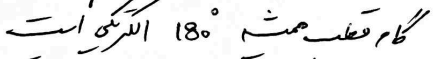 گام قطب همیشه ۱۸۰° الکتریکی است